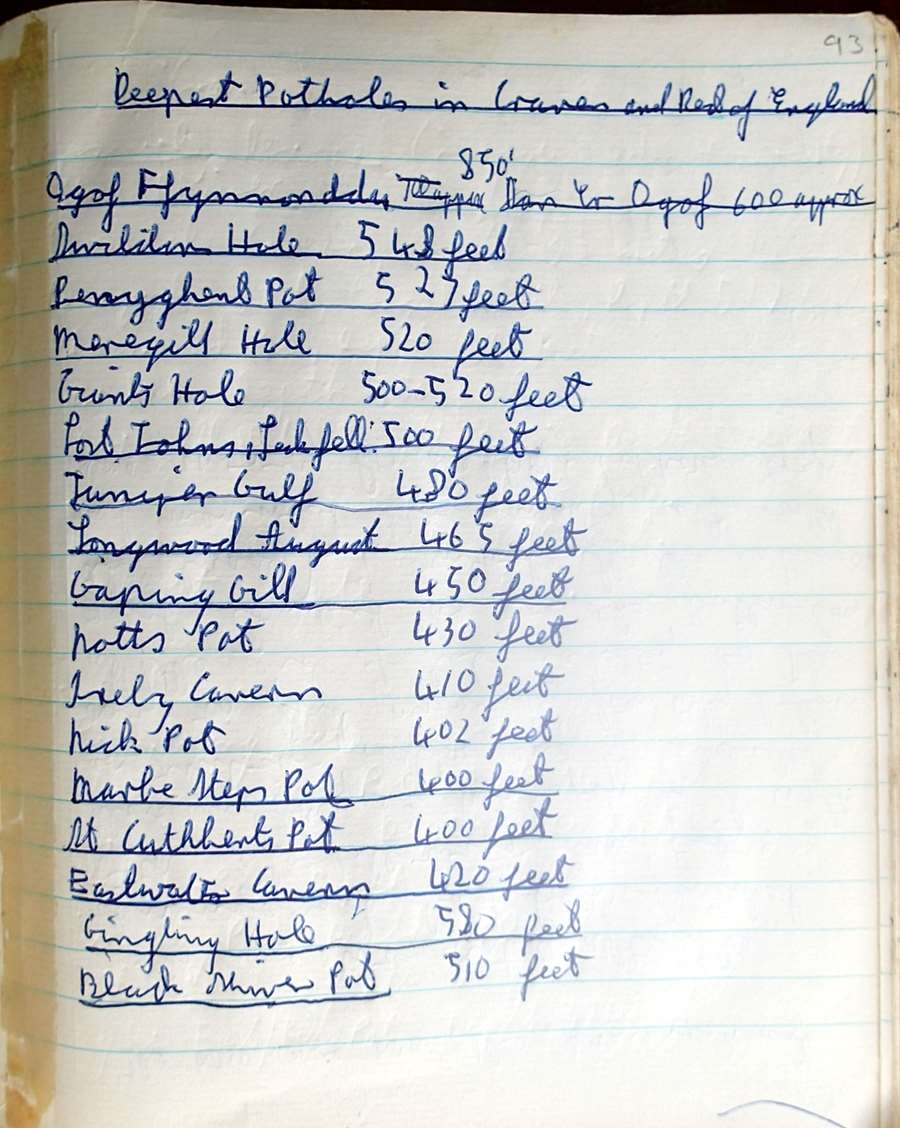 93
Deepest Potholes in Craven and Rest of England
850'
Ogof Ffynnonddu, approx Dan Yr Ogof 600 approx
Hole 548 feet
Penyghent Pot 527 feet
Meregill Hole 520 feet
Giants Hole 500-520 feet
Lost Johns, Leck fell: 500 feet
Juniper Gulf 480 feet
Longwood August 465 feet
Gaping Gill 450 feet
Notts Pot 430 feet
Ireby Cavern 410 feet
Nick Pot 402 feet
Marbe Steps Pot 400 feet
St Cuthberts Pot 400 feet
Eastwater Cavern 420 feet
Gingling Hole 580 feet
Black Shiver Pot 510 feet